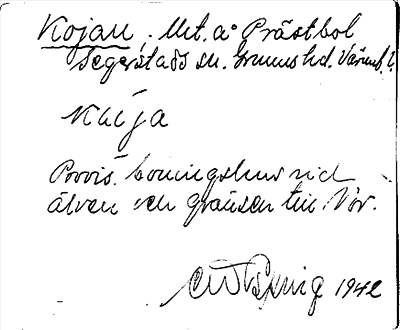 Kojan. Utt. a° Prästbol
Segerstads sn. Grums hd. Värml. l.
Kåja
Provis. boningshus vid
älven och gränsen till Nor.
1942